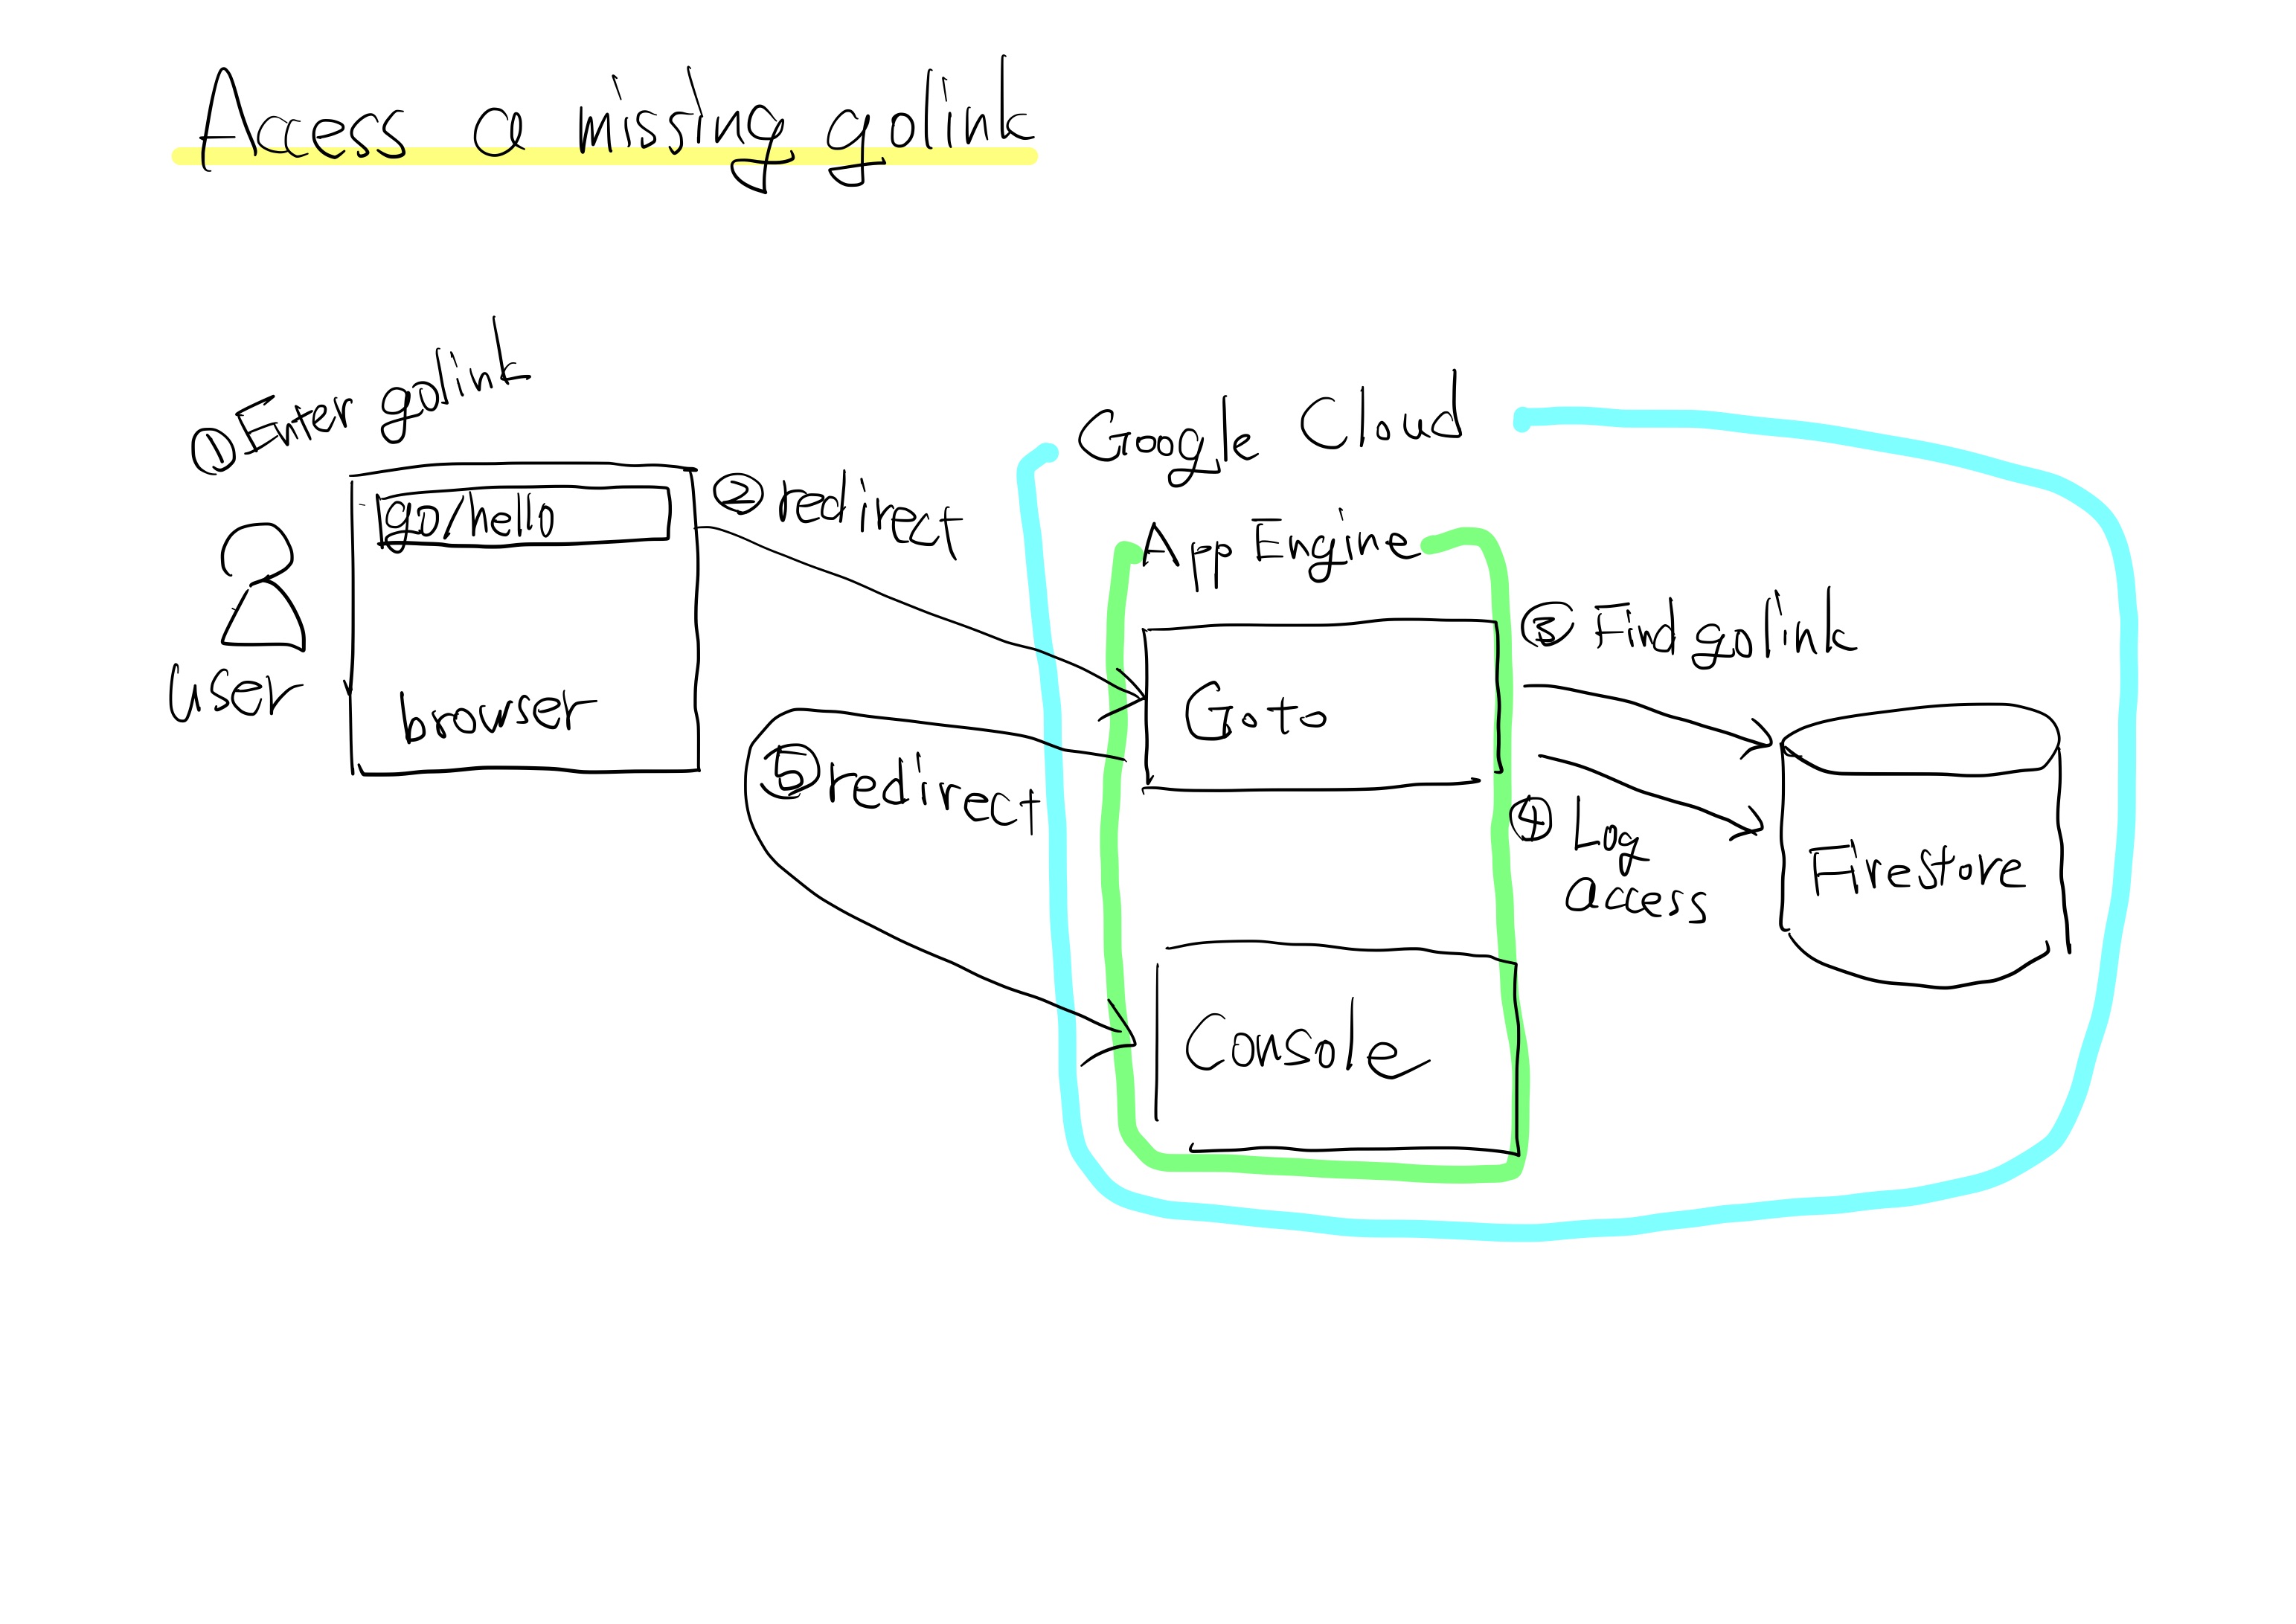 Access a missing golink
① Enter golink
go/hello
browser
user
② redirect
Google Cloud
App Engine
Goto
③ Find golink
④ Log
access
Firestore
⑤ redirect
Console